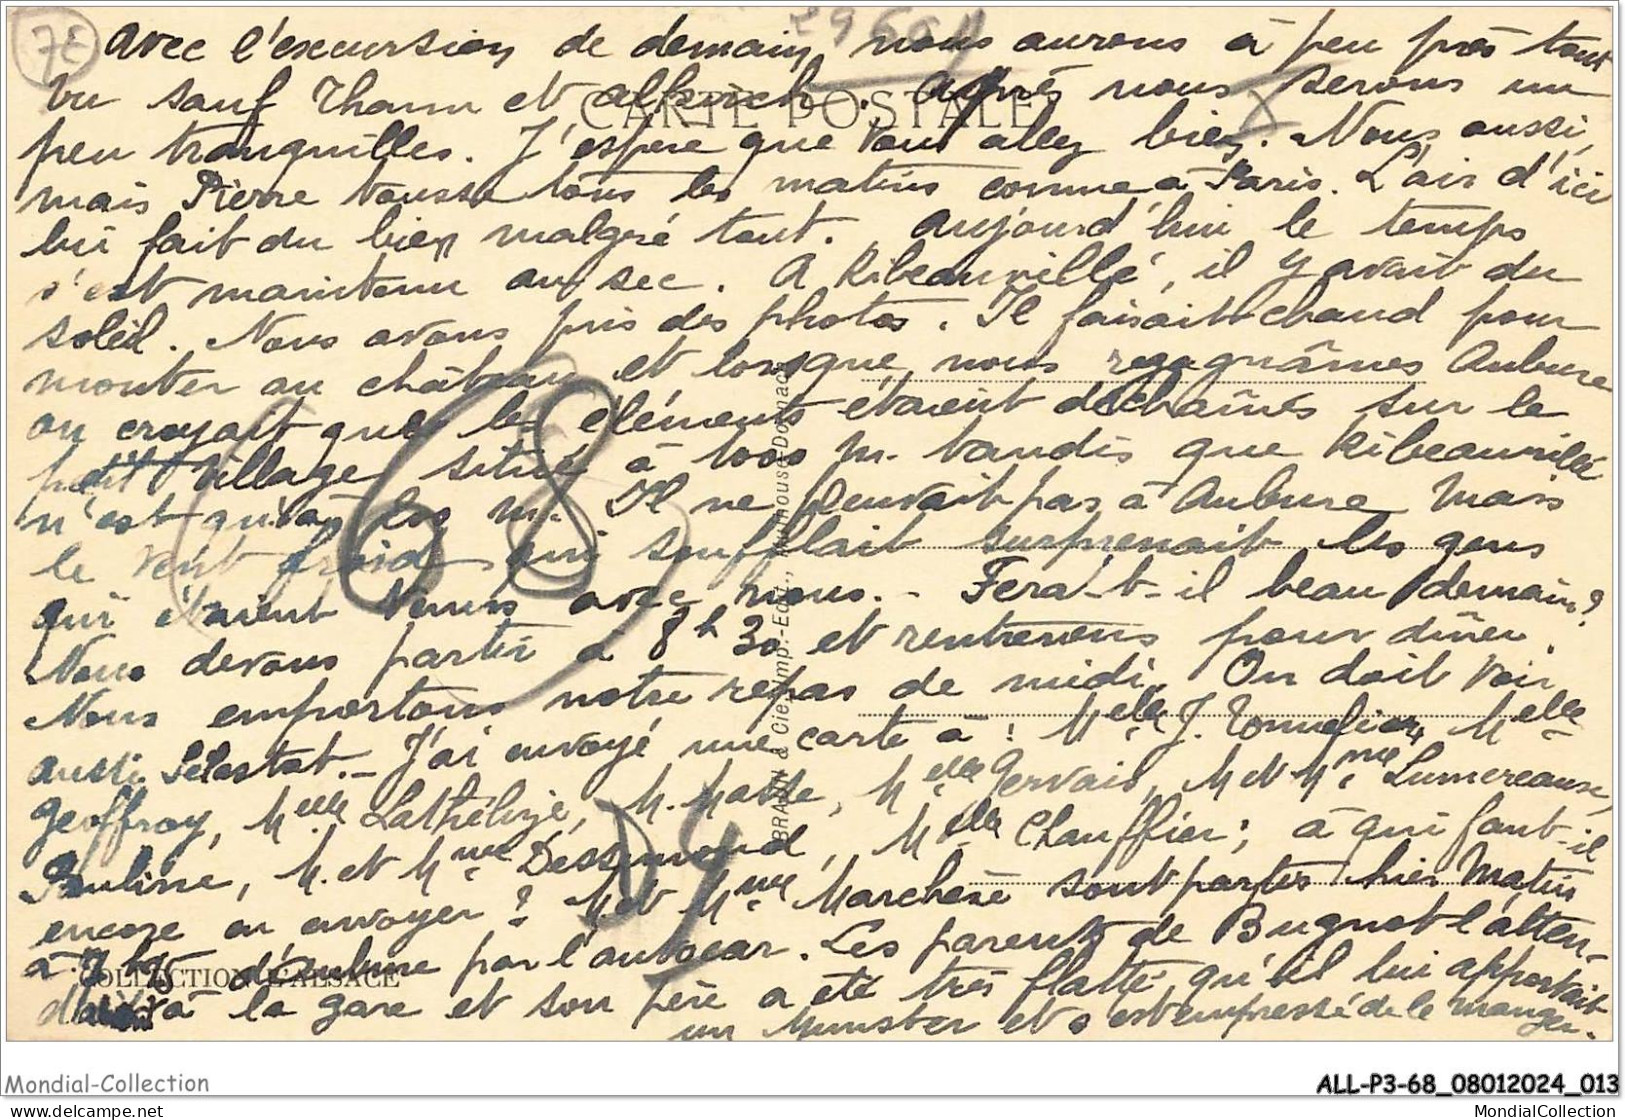 7E
Avec l'excursion de demain, nous aurons à peu près tout
vu sauf Thann et Altkirch. Après nous serons un
CARTE POSTALE
peu tranquilles. J'espère que vous allez bien. Nous aussi,
mais Pierre tousse tous les matins comme à Paris. L'air d'ici
lui fait du bien malgré tout. Aujourd'hui le temps
s'est maintenu au sec. A Ribeauvillé, il y avait du
soleil. Nous avons pris des photos. Il faisait chaud pour
monter au château et lorsque nous regagnâmes Aubure
on croyait que les éléments étaient déchaînés sur le
petit village situé à 1000 m. tandis que Ribeauvillé
n'est qu'à m. Il ne pleuvait pas à Aubure mais
le vent froid qui soufflait surprenait les gens
qui étaient venus avec nous. - Fera-t-il beau demain?
Nous devons partir à 8h30 et rentrerons pour dîner.
Nous emportons notre repas de midi. On doit voir
aussi Sélestat. - J'ai envoyé une carte à : Melle J. Tonnelier, Melle
Geoffroy, Melle M. Masse, Melle Gervais, M et Mme Lumereaux,
Pauline, M. et Mme Dessemond, Melle Chauffier; à qui faut-il
encore en envoyer? M et Mme Marchese sont partis hier matin
à d'Aubure par l'autocar. Les parents de Bugnot l'atten-
daient à la gare et son père a été très flatté qu'il lui apportait
un Munster et s'est empressé de le manger.
68
BRAUN & Cie, Imp.-Edit., Mulhouse-Dornach
COLLECTION D'ALSACE
Mondial-Collection
ALL-P3-68_08012024_013
www.delcampe.net
MondialCollection